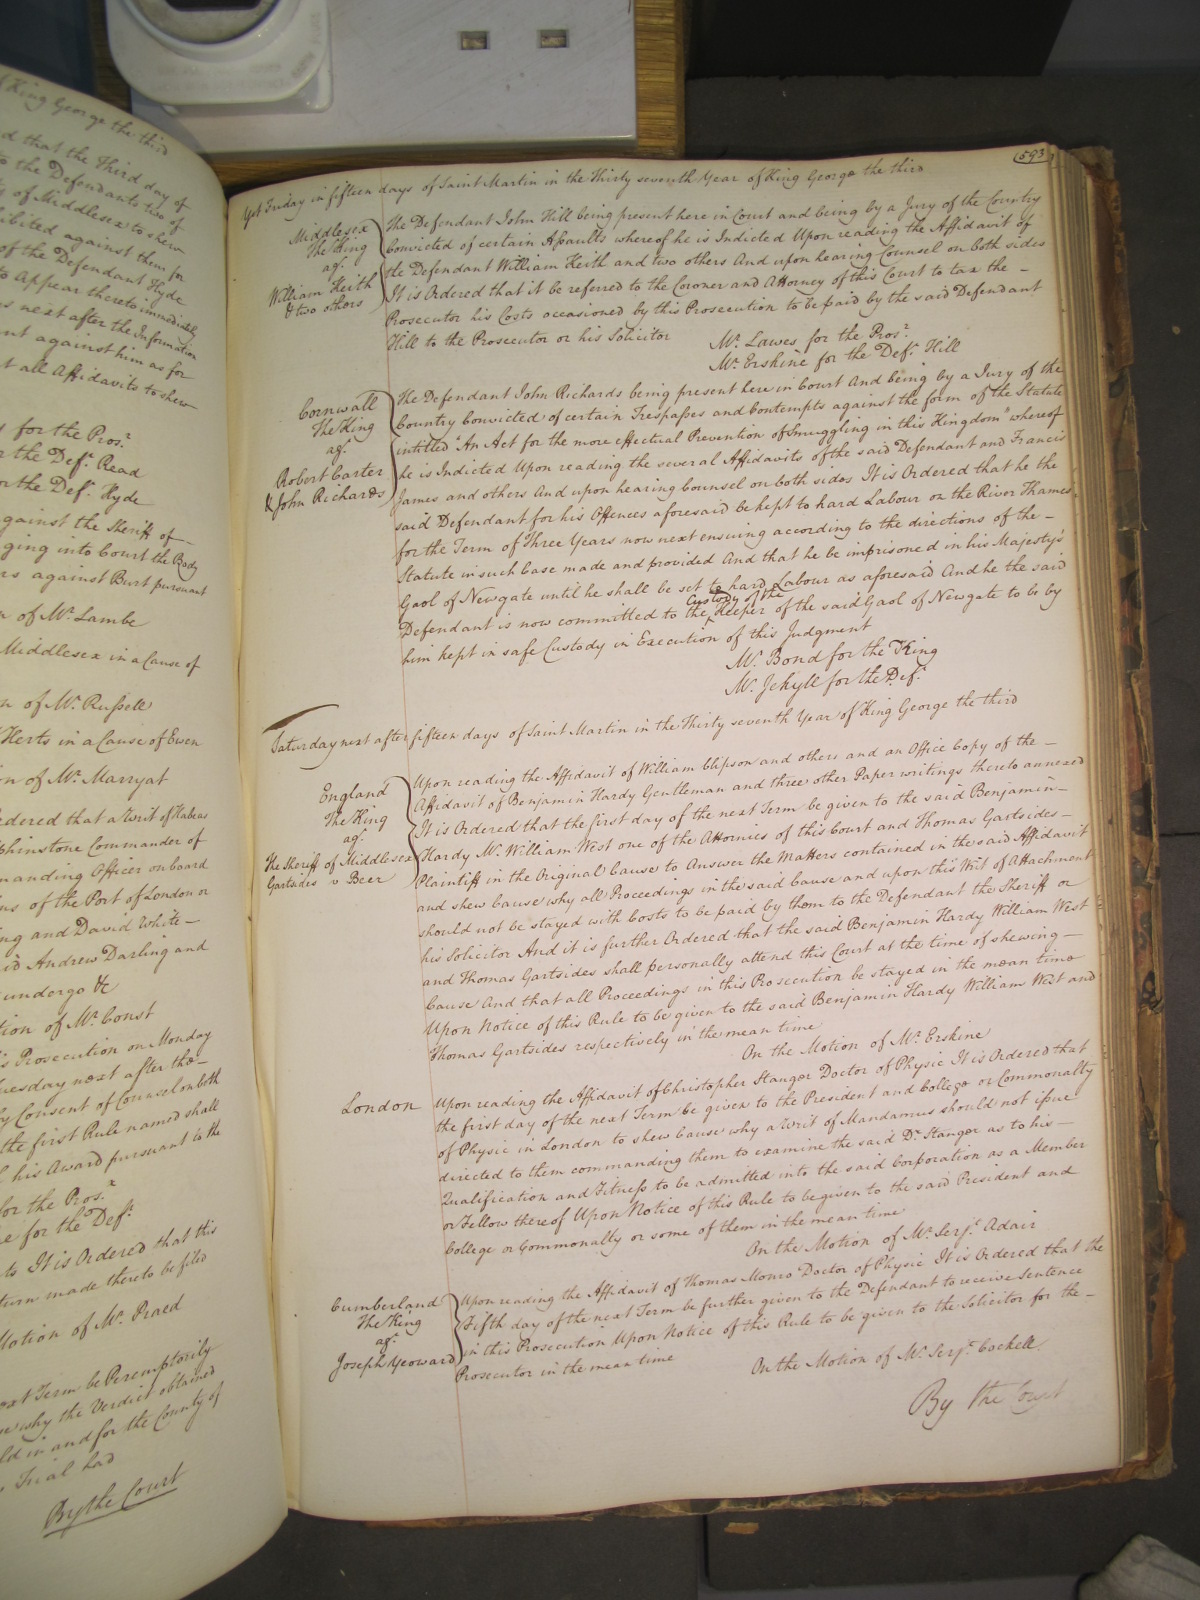 of King George the third
d that the Third day of
o the Defendants two of
s of Middlesex to shew
hibited against them for
of the Defendant Hyde
to Appear thereto immediately
s next after the Information
nt against him as for
t all Affidavits to shew
y for the Pros.r
r the Def.t Read
or the Def.t Hyde
against the Sheriff of
ging into Court the Body
rs against Burt pursuant
n of Mr. Lambe
Middlesex in a Cause of
n of Mr. Russell
Herts in a Cause of Ewen
on of Mr. Marryat
rdered that a Writ of Habeas
phinstone Commander of
manding Officer on board
ins of the Port of London or
ng and David White
id Andrew Darling and
undergo &c
tion of Mr. Const
is Prosecution on Monday
uesday next after the
y Consent of Counsel on both
the first Rule named shall
l his Award pursuant to the
for the Pros.r
e for the Def.t
ts It is Ordered that this
turn made thereto be filed
Motion of Mr. Praed
ext Term be Peremptorily
w why the Verdict obtained
ld in and for the County of
Trial had
By the Court
593
Yet Friday in fifteen days of Saint Martin in the Thirty seventh Year of King George the third
Middlesex
The King
ag.t
William Keith
& two others
The Defendant John Hill being present here in Court and being by a Jury of the Country
Convicted of certain Assaults whereof he is Indicted Upon reading the Affidavit of
the Defendant William Keith and two others And upon hearing Counsel on both sides
It is Ordered that it be referred to the Coroner and Attorney of this Court to tax the
Prosecutor his Costs occasioned by this Prosecution to be paid by the said Defendant
Hill to the Prosecutor or his Solicitor
Mr. Lawes for the Pros.r
Mr. Erskine for the Def.t Hill
Cornwall
The King
ag.t
Robert Carter
& John Richards
The Defendant John Richards being present here in Court And being by a Jury of the
Country Convicted of certain Trespasses and Contempts against the form of the Statute
intitled "An Act for the more effectual Prevention of Smuggling in this Kingdom" whereof
he is Indicted Upon reading the several Affidavits of the said Defendant and Francis
James and others And upon hearing Counsel on both sides It is Ordered that he the
said Defendant for his Offences aforesaid be kept to hard Labour on the River Thames
for the Term of Three Years now next ensuing according to the directions of the
Statute in such Case made and provided And that he be imprisoned in his Majesty's
Gaol of Newgate until he shall be set to hard Labour as aforesaid And he the said
Defendant is now committed to the Custody of the Keeper of the said Gaol of Newgate to be by
him kept in safe Custody in Execution of this Judgment
Mr. Bond for the King
Mr. Jekyll for the Def.t
Saturday next after fifteen days of Saint Martin in the Thirty seventh Year of King George the third
England
The King
ag.t
The Sheriff of Middlesex
Gartsides v Beer
Upon reading the Affidavit of William Clipson and others and an Office Copy of the
Affidavit of Benjamin Hardy Gentleman and three other Paper writings thereto annexed
It is Ordered that the first day of the next Term be given to the said Benjamin
Hardy Mr. William West one of the Attornies of this Court and Thomas Gartsides
Plaintiff in the Original Cause to Answer the Matters contained in the said Affidavit
and shew Cause why all Proceedings in the said Cause and upon this Writ of Attachment
should not be stayed with Costs to be paid by them to the Defendant the Sheriff or
his Solicitor And it is further Ordered that the said Benjamin Hardy William West
and Thomas Gartsides shall personally attend this Court at the time of shewing
Cause And that all Proceedings in this Prosecution be stayed in the mean time
Upon Notice of this Rule to be given to the said Benjamin Hardy William West and
Thomas Gartsides respectively in the mean time
On the Motion of Mr. Erskine
London
Upon reading the Affidavit of Christopher Stanger Doctor of Physic It is Ordered that
the first day of the next Term be given to the President and College or Commonalty
of Physic in London to shew Cause why a Writ of Mandamus should not issue
directed to them commanding them to examine the said Dr. Stanger as to his
Qualification and Fitness to be admitted into the said Corporation as a Member
or Fellow thereof Upon Notice of this Rule to be given to the said President and
College or Commonalty or some of them in the mean time
On the Motion of Mr. Serj.t Adair
Cumberland
The King
ag.t
Joseph Yeoward
Upon reading the Affidavit of Thomas Monro Doctor of Physic It is Ordered that the
Fifth day of the next Term be further given to the Defendant to receive Sentence
in this Prosecution Upon Notice of this Rule to be given to the Solicitor for the
Prosecutor in the mean time
On the Motion of Mr. Serj.t Cockell
By the Court